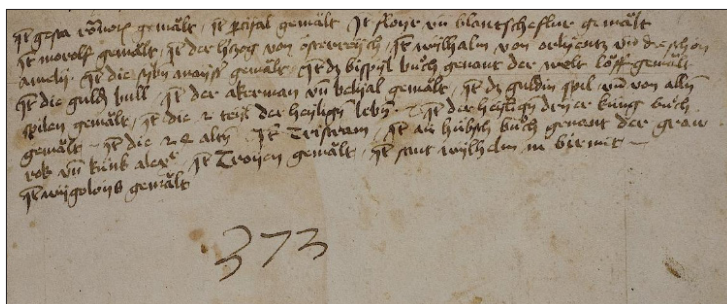 Jt gesta romanor gemält · Jt parcifal gemält Jt flore vn̄ blantscheflur gemält
Jt morolf gemält · Jt der hr̄zog von österreich · Jt wilhalm von orlientz vn̄ die schön
amely · Jt die sybn maister gemält · Jt dz bispil bůch genant der welt löff gemält
Jt die guldī bull · Jt der akerman vn̄ belial gemält · Jt dz guldin spil vn̄ von alln
spilen gemält · Jt die 2 teil der heilign lebn · Jt der heilign drier küng bůch
gemält – Jt die 24 altn Jt Tristram · Jt ain hübsch bůch genant der graw
rok vn̄ künk alexr Jt Troyen gemält · Jt sant wilhelm in birmit –
Jt wigoloys gemält
373